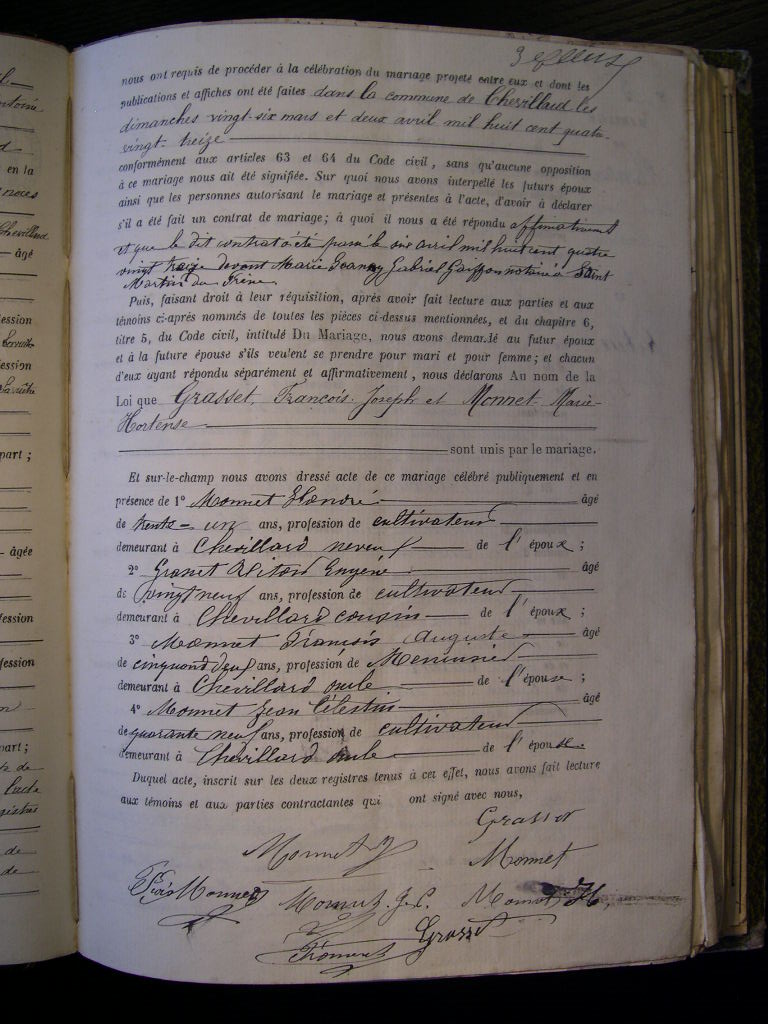 nous ont requis de procéder à la célébration du mariage projeté entre eux et dont les
publications et affiches ont été faites dans la commune de Chevillard les
dimanches vingt-six mars et deux avril mil huit cent quatre
vingt-treize
conformément aux articles 63 et 64 du Code civil, sans qu'aucune opposition
à ce mariage nous ait été signifiée. Sur quoi nous avons interpellé les futurs époux
ainsi que les personnes autorisant le mariage et présentes à l'acte, d'avoir à déclarer
s'il a été fait un contrat de mariage ; à quoi il nous a été répondu affirmativement
et que le dit contrat a été passé le six avril mil huit cent quatre
vingt treize devant Marie Gabriel notaire à Saint
Martin du Frêne
Puis, faisant droit à leur réquisition, après avoir fait lecture aux parties et aux
témoins ci-après nommés de toutes les pièces ci-dessus mentionnées, et du chapitre 6,
titre 5, du Code civil, intitulé Du Mariage, nous avons demandé au futur époux
et à la future épouse s'ils veulent se prendre pour mari et pour femme ; et chacun
d'eux ayant répondu séparément et affirmativement, nous déclarons Au nom de la
Loi que Grasset, François-Joseph et Monnet Marie-
Hortense
sont unis par le mariage.
Et sur-le-champ nous avons dressé acte de ce mariage célébré publiquement et en
présence de 1° Monnet âgé
de trente-un ans, profession de cultivateur
demeurant à Chevillard neveu de l'époux ;
2° Eugène âgé
de vingt neuf ans, profession de cultivateur
demeurant à Chevillard cousin de l'époux ;
3° Monnet François Auguste âgé
de cinquand deux ans, profession de Menuisier
demeurant à Chevillard oncle de l'épouse ;
4° Monnet Jean Célestin âgé
de quarante neuf ans, profession de cultivateur
demeurant à Chevillard oncle de l'épouse.
Duquel acte, inscrit sur les deux registres tenus à cet effet, nous avons fait lecture
aux témoins et aux parties contractantes qui ont signé avec nous,
Grasset
Monnet Monnet
Fçois Monnet Monnet J. C. Monnet H,
Grasset